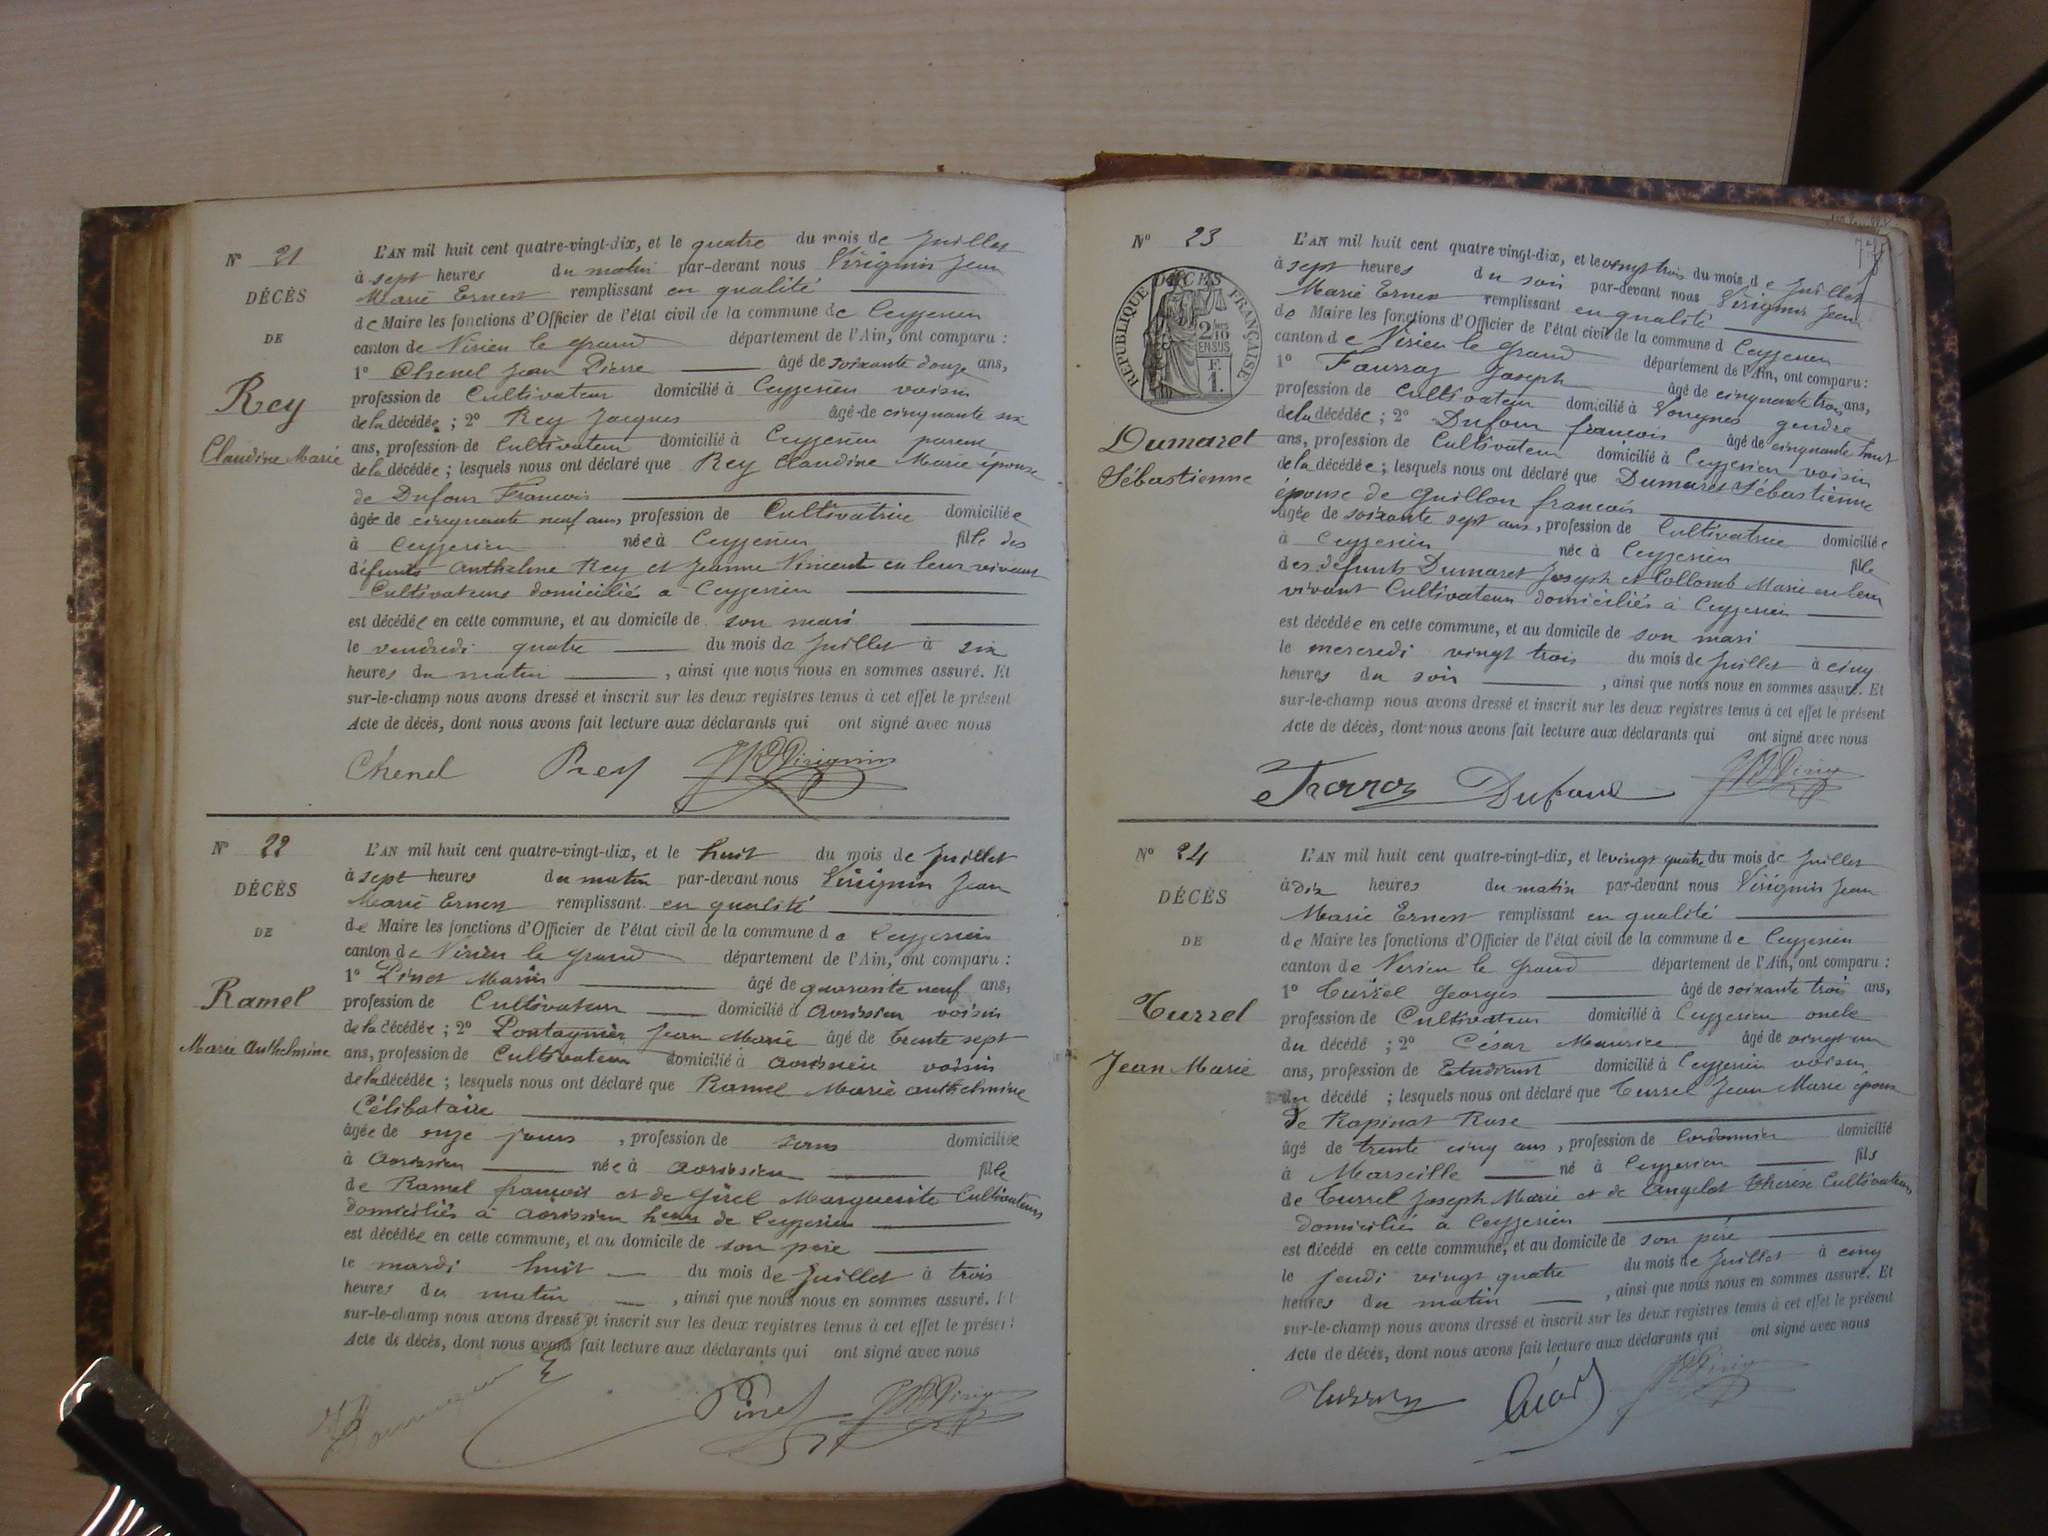 N° 21
DÉCÈS
DE
Rey
Claudine Marie
L'AN mil huit cent quatre-vingt-dix, et le quatre du mois de Juillet
à sept heures du matin par-devant nous Virignin Jean
Marie Ernest remplissant en qualité
de Maire les fonctions d'Officier de l'état civil de la commune de Ceyzerieu
canton de Virieu le grand département de l'Ain, ont comparu :
1° Chenel Jean Pierre âgé de soixante douze ans,
profession de Cultivateur domicilié à Ceyzerieu voisin
de la décédée ; 2° Rey Jacques âgé de cinquante six
ans, profession de Cultivateur domicilié à Ceyzerieu parent
de la décédée ; lesquels nous ont déclaré que Rey Claudine Marie épouse
de Dufour Francois
âgée de cinquante neuf ans, profession de Cultivatrice domiciliée
à Ceyzerieu née à Ceyzerieu fille des
défunts Anthelme Rey et Jeanne Vincent en leur vivant
Cultivateurs domiciliés a Ceyzerieu
est décédée en cette commune, et au domicile de son mari
le vendredi quatre du mois de Juillet à six
heures du matin , ainsi que nous nous en sommes assuré. Et
sur-le-champ nous avons dressé et inscrit sur les deux registres tenus à cet effet le présent
Acte de décès, dont nous avons fait lecture aux déclarants qui ont signé avec nous
Chenel Rey Virignin
N° 22
DÉCÈS
DE
Ramel
Marie Anthelmine
L'AN mil huit cent quatre-vingt-dix, et le huit du mois de Juillet
à sept heures du matin par-devant nous Virignin Jean
Marie Ernest remplissant en qualité
de Maire les fonctions d'Officier de l'état civil de la commune de Ceyzerieu
canton de Virieu le grand département de l'Ain, ont comparu :
1° Pinet Marin âgé de quarante neuf ans,
profession de Cultivateur domicilié à Avrissieu voisin
de la décédée ; 2° Pontagnier Jean Marie âgé de trente sept
ans, profession de Cultivateur domicilié à Avrissieu voisin
de la décédée ; lesquels nous ont déclaré que Ramel Marie Anthelmine
Célibataire
âgée de onze jours , profession de sans domiciliée
à Avrissieu née à Avrissieu fille
de Ramel francois et de Girel Marguerite Cultivateurs
domiciliés à Avrissieu heau de Ceyzerieu
est décédée en cette commune, et au domicile de son père
le mardi huit du mois de Juillet à trois
heures du matin , ainsi que nous nous en sommes assuré.
sur-le-champ nous avons dressé et inscrit sur les deux registres tenus à cet effet le présent
Acte de décès, dont nous avons fait lecture aux déclarants qui ont signé avec nous
Pinet
N° 23
RÉPUBLIQUE FRANÇAISE
2/10 EN SUS
F. 1.
DÉCÈS
Dumaret
Sébastienne
L'AN mil huit cent quatre vingt-dix, et le vingt trois du mois de Juillet
à sept heures du soir par-devant nous Virignin Jean
Marie Ernest remplissant en qualité
de Maire les fonctions d'Officier de l'état civil de la commune d Ceyzerieu
canton de Virieu le grand département de l'Ain, ont comparu :
1° Fourraz Joseph âgé de cinquante trois ans,
profession de Cultivateur domicilié à gendre
de la décédée ; 2° Dufour francois âgé de cinquante huit
ans, profession de Cultivateur domicilié à Ceyzerieu voisin
de la décédée ; lesquels nous ont déclaré que Dumaret Sébastienne
épouse de Guillon francois
âgée de soixante sept ans, profession de Cultivatrice domiciliée
à Ceyzerieu née à Ceyzerieu fille
des défunts Dumaret Joseph et Collomb Marie en leur
vivant Cultivateurs domiciliés à Ceyzerieu
est décédée en cette commune, et au domicile de son mari
le mercredi vingt trois du mois de Juillet à cinq
heures du soir , ainsi que nous nous en sommes assuré. Et
sur-le-champ nous avons dressé et inscrit sur les deux registres tenus à cet effet le présent
Acte de décès, dont nous avons fait lecture aux déclarants qui ont signé avec nous
Dufour
N° 24
DÉCÈS
DE
Turrel
Jean Marie
L'AN mil huit cent quatre-vingt-dix, et le vingt quatre du mois de Juillet
à dix heures du matin par-devant nous Virignin Jean
Marie Ernest remplissant en qualité
de Maire les fonctions d'Officier de l'état civil de la commune de Ceyzerieu
canton de Virieu le grand département de l'Ain, ont comparu :
1° Turrel Georges âgé de soixante trois ans,
profession de Cultivateur domicilié à Ceyzerieu oncle
du décédé ; 2° César Maurice âgé de vingt un
ans, profession de Etudiant domicilié à Ceyzerieu voisin
du décédé ; lesquels nous ont déclaré que Turrel Jean Marie époux
de Rapinat Rose
âgé de trente cinq ans, profession de Cordonnier domicilié
à Marseille né à Ceyzerieu fils
de Turrel Joseph Marie et de Angelot Thérèse Cultivateurs
domiciliés a Ceyzerieu
est décédé en cette commune, et au domicile de son père
le jeudi vingt quatre du mois de Juillet à cinq
heures du matin , ainsi que nous nous en sommes assuré. Et
sur-le-champ nous avons dressé et inscrit sur les deux registres tenus à cet effet le présent
Acte de décès, dont nous avons fait lecture aux déclarants qui ont signé avec nous